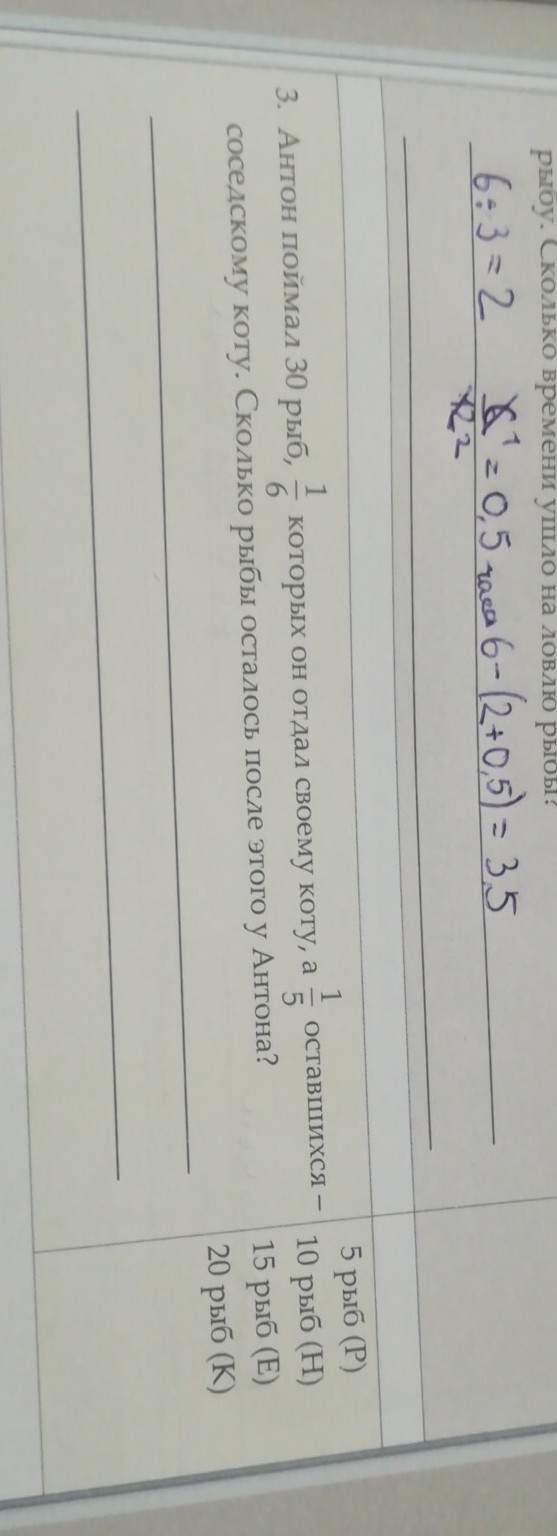 рыбу. Сколько времени ушло на ловлю рыбы?
6 : 3 = 2 6 1 / 12 2 = 0,5 часа 6 - (2 + 0,5) = 3,5
3. Антон поймал 30 рыб, 1/6 которых он отдал своему коту, а 1/5 оставшихся –
соседскому коту. Сколько рыбы осталось после этого у Антона?
5 рыб (Р)
10 рыб (Н)
15 рыб (Е)
20 рыб (К)